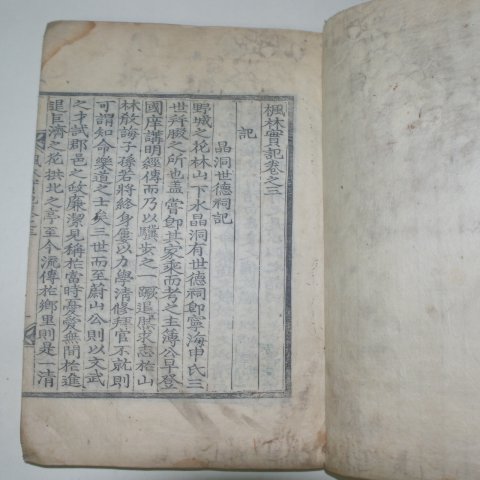 楓林實記卷之三
記
晶洞世德祠記
野城之花林山下水晶洞有世德祠卽寧海申氏三
世弆服之所也盖嘗卽其家乘而考之主簿公早登
國庠講明經傳而乃以驥步之一蹶退歷求志於山
林敎誨子孫若將終身屢以力學淸修拜官不就則
可謂知命樂道之士矣三世而至蔚山公則以文武
之才試郡邑之政廉潔見稱於當時憂愛無間於進
退巨濟之花拱北之亭至今流傳於鄕里則是一淸